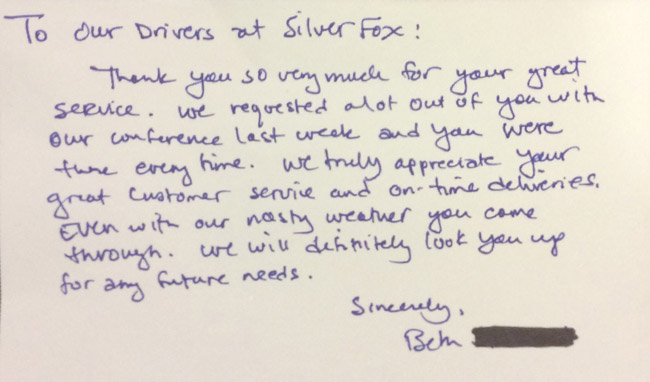 To our Drivers at SilverFox:
Thank you so very much for your great
service. We requested alot out of you with
our conference last week and you were
there every time. We truly appreciate your
great customer service and on-time deliveries.
Even with our nasty weather you came
through. We will definitely look you up
for any future needs.
Sincerely,
Beth